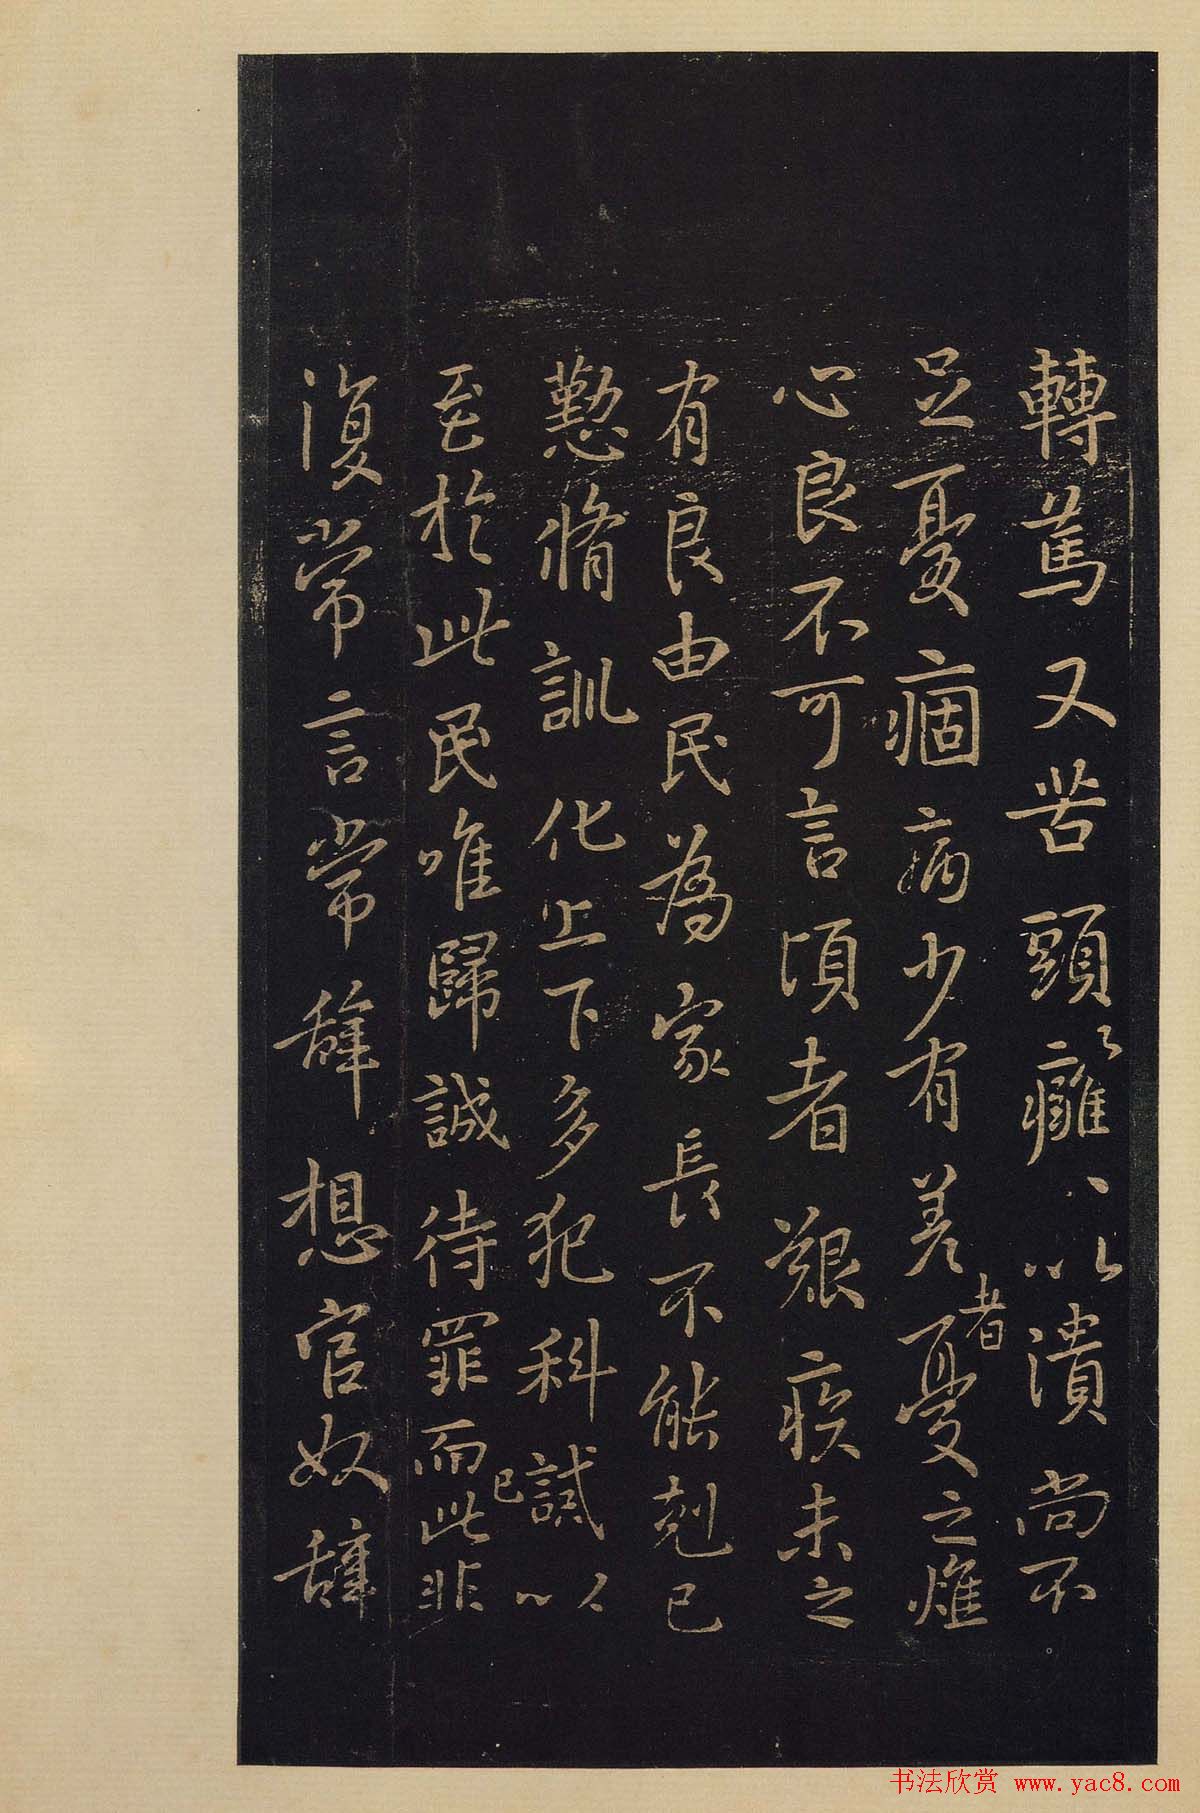 轉篤又苦頭〻癰〻以潰尚不
足憂痼病少有差者憂之燋
心良不可言頃者艱疾未之
有良由民為家長不能剋己
懃脩訓化上下多犯科誡以
至於此民唯歸誠待罪而已此非
復常言常辭想官奴辭
书法欣赏 www.yac8.com